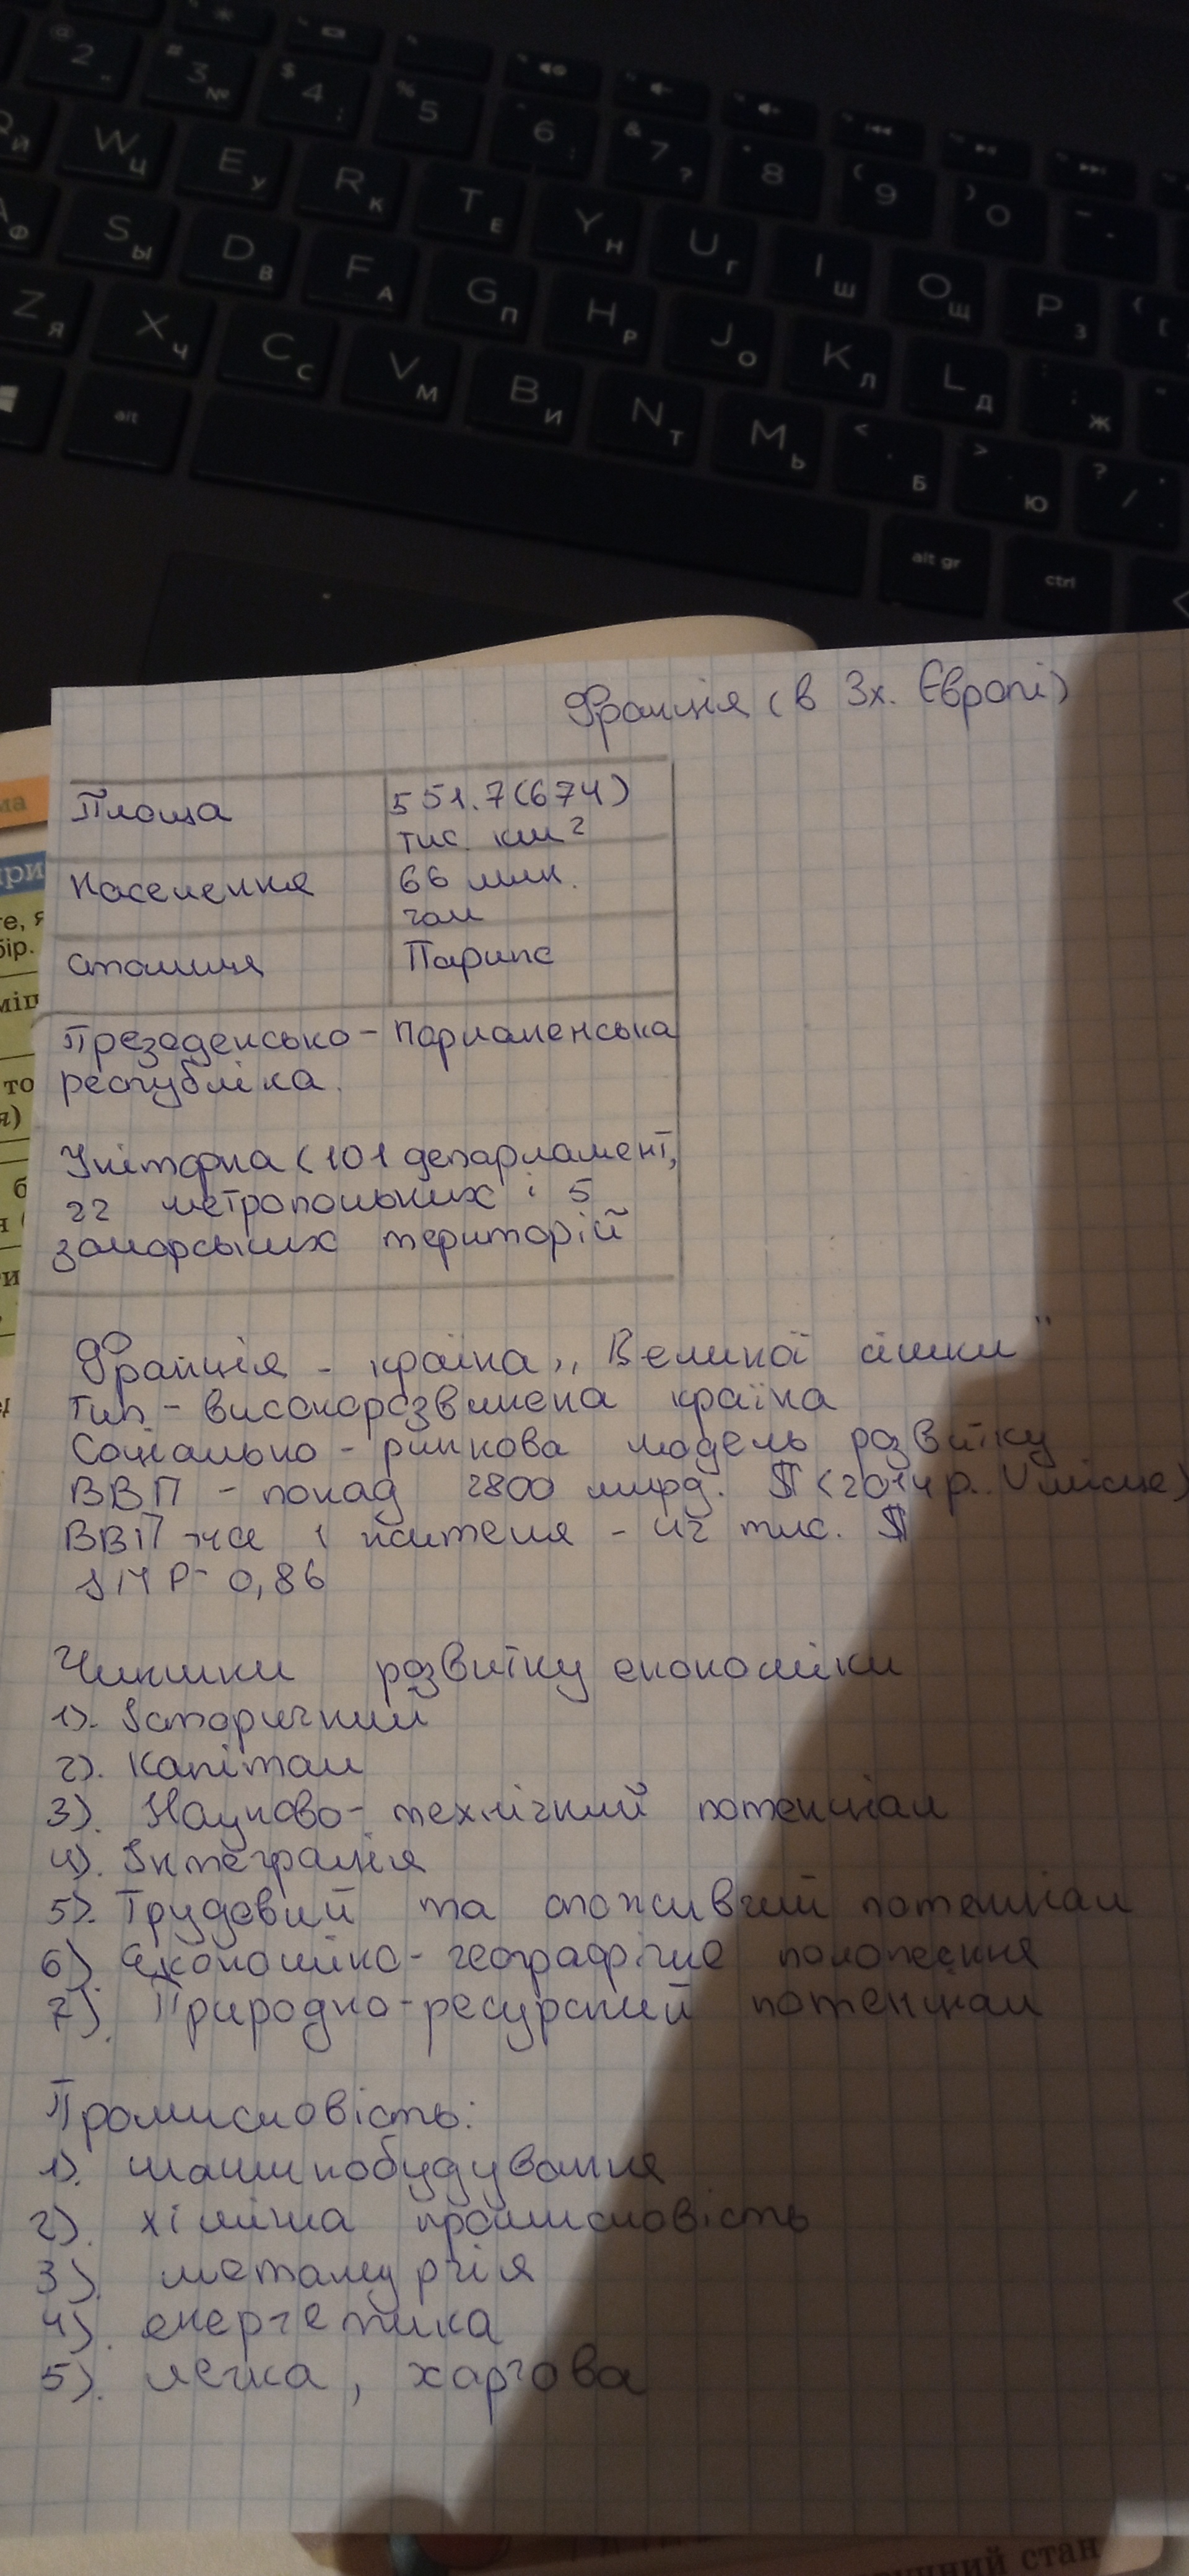 @ 2 " # 3 № $ 4 ; % 5 6 : & 7 ? * 8 ( 9 ) 0 -
W Ц E У R К T Е Y Н U Г I Ш O Щ P З
Ф S Ы D В F А G П H Р J О K Л L Д Ж
Z Я X Ч C С V М B И N Т M Ь < Б > Ю ? /
alt
alt gr
ctrl
Франція (в Зх. Європі)
Площа 551.7(674)
тис. км²
Населення 66 млн.
чол
столиця Париж
Презеденсько - парламенська
республіка.
Унітарна (101 департамент,
22 метропольних і 5
заморських територій
Франція - країна „Великої сімки"
Тип - високорозвинена країна
Соціально - ринкова модель розвитку
ВВП - понад 2800 млрд. $ (2014 р. V місце)
ВВП на 1 жителя - 42 тис. $
ІЛР - 0,86
Чинники розвитку економіки
1). Історичний
2). Капітал
3). Науково - технічний потенціал
4). Інтеграція
5). Трудовий та споживчий потенціал
6). Економіко - географічне положення
7). Природно - ресурсний потенціал
Промисловість:
1). машинобудування
2). хімічна промисловість
3). металургія
4). енергетика
5). легка, харчова
стан